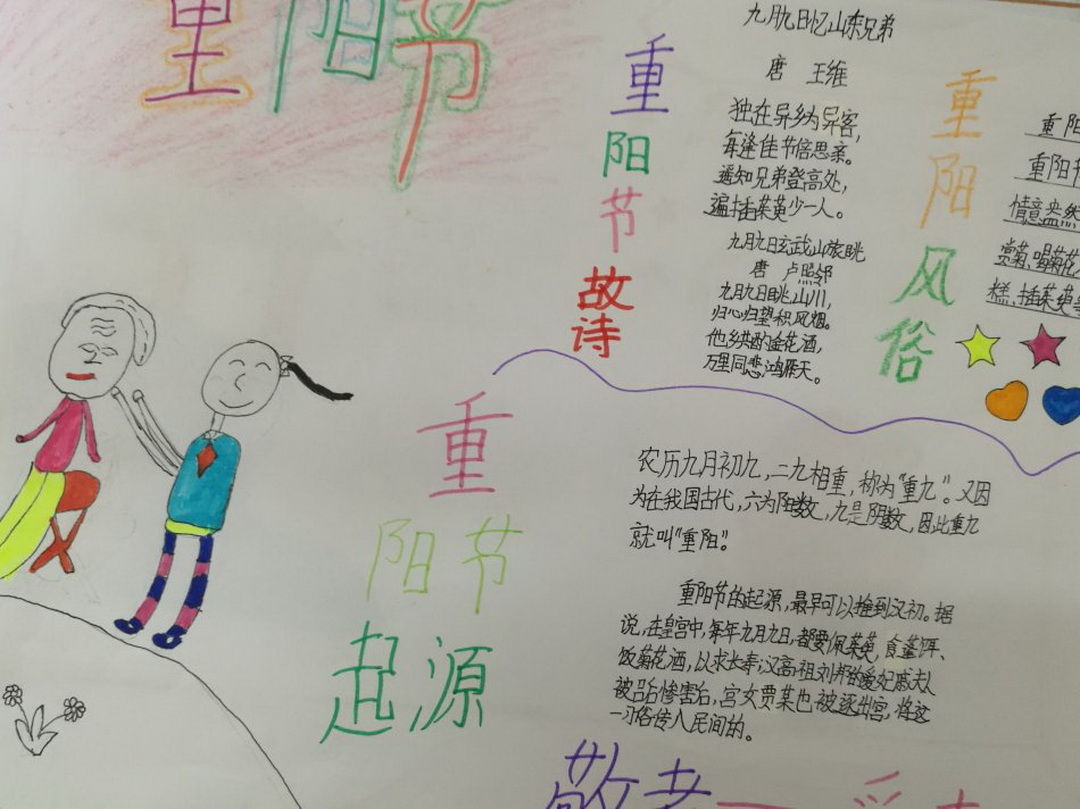 重阳节
重阳节故诗
九月九日忆山东兄弟
唐 王维
独在异乡为异客，
每逢佳节倍思亲。
遥知兄弟登高处，
遍插茱萸少一人。
九月九日玄武山旅眺
唐 卢照邻
九月九日眺山川，
归心归望积风烟。
他乡共酌金花酒，
万里同悲鸿雁天。
重阳风俗
重阳
重阳节
情意盎然
赏菊、喝菊花
糕、插茱萸等
重阳节起源
农历九月初九，二九相重，称为“重九”。又因
为在我国古代，六为阳数，九是阴数，因此重九
就叫“重阳”。
重阳节的起源，最早可以推到汉初。据
说，在皇宫中，每年九月九日，都要佩茱萸，食蓬饵、
饮菊花酒，以求长寿；汉高祖刘邦的爱妃戚夫人
被吕后惨害后，宫女贾某也被逐出宫，将这
一习俗传入民间的。
敬老